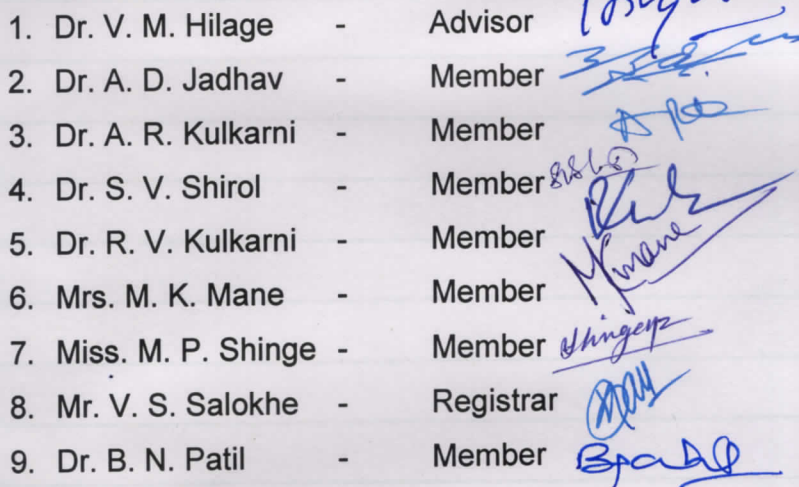 1. Dr. V. M. Hilage - Advisor
2. Dr. A. D. Jadhav - Member
3. Dr. A. R. Kulkarni - Member
4. Dr. S. V. Shirol - Member
5. Dr. R. V. Kulkarni - Member
6. Mrs. M. K. Mane - Member
7. Miss. M. P. Shinge - Member
8. Mr. V. S. Salokhe - Registrar
9. Dr. B. N. Patil - Member